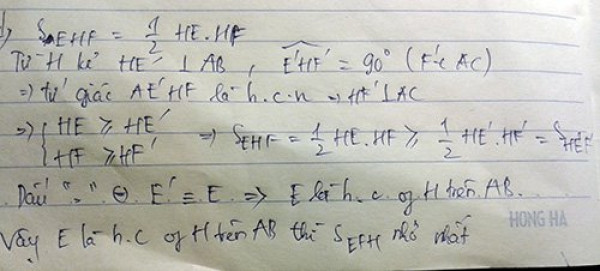 S_EHF = 1/2 HE.HF
Từ H kẻ HE' ⊥ AB, E'HF' = 90° (F' ∈ AC)
=> tứ giác AE'HF là h.c.n => HF' ⊥ AC
=> { HE ≥ HE' HF ≥ HF' => S_EHF = 1/2 HE.HF ≥ 1/2 HE'.HF' = S_HE'F'
Dấu "=" ⇔ E' ≡ E => E là h.c of H trên AB.
HONG HA
Vậy E là h.c of H trên AB thì S_EFH nhỏ nhất